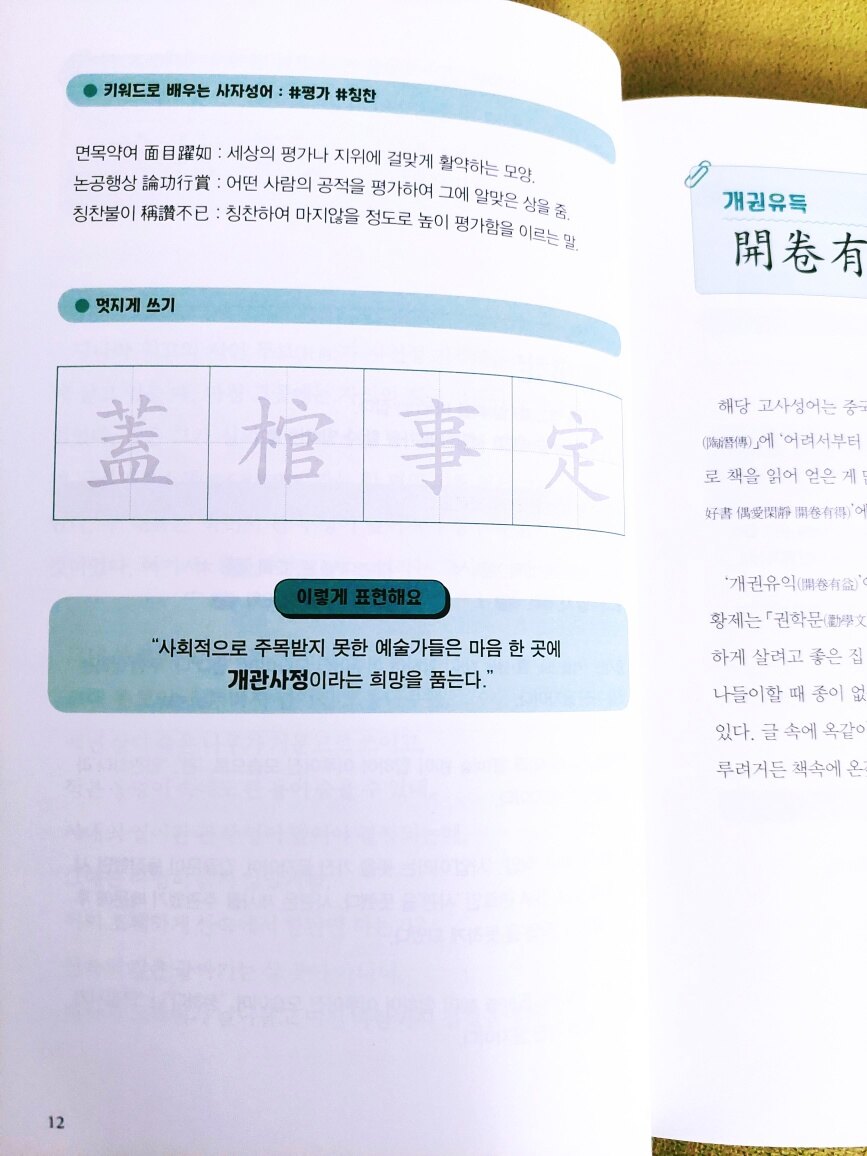 ● 키워드로 배우는 사자성어 : #평가 #칭찬
면목약여 面目躍如 : 세상의 평가나 지위에 걸맞게 활약하는 모양.
논공행상 論功行賞 : 어떤 사람의 공적을 평가하여 그에 알맞은 상을 줌.
칭찬불이 稱讚不已 : 칭찬하여 마지않을 정도로 높이 평가함을 이르는 말.
● 멋지게 쓰기
蓋棺事定
이렇게 표현해요
“사회적으로 주목받지 못한 예술가들은 마음 한 곳에
개관사정이라는 희망을 품는다.”
12
개권유득
開卷有
해당 고사성어는 중국
(陶潛傳)」에 ‘어려서부터
로 책을 읽어 얻은 게
好書 偶愛閑靜 開卷有得)’에
‘개권유익(開卷有益)’
황제는 「권학문(勸學文
하게 살려고 좋은 집
나들이할 때 종이 없
있다. 글 속에 옥같이
루려거든 책속에 온